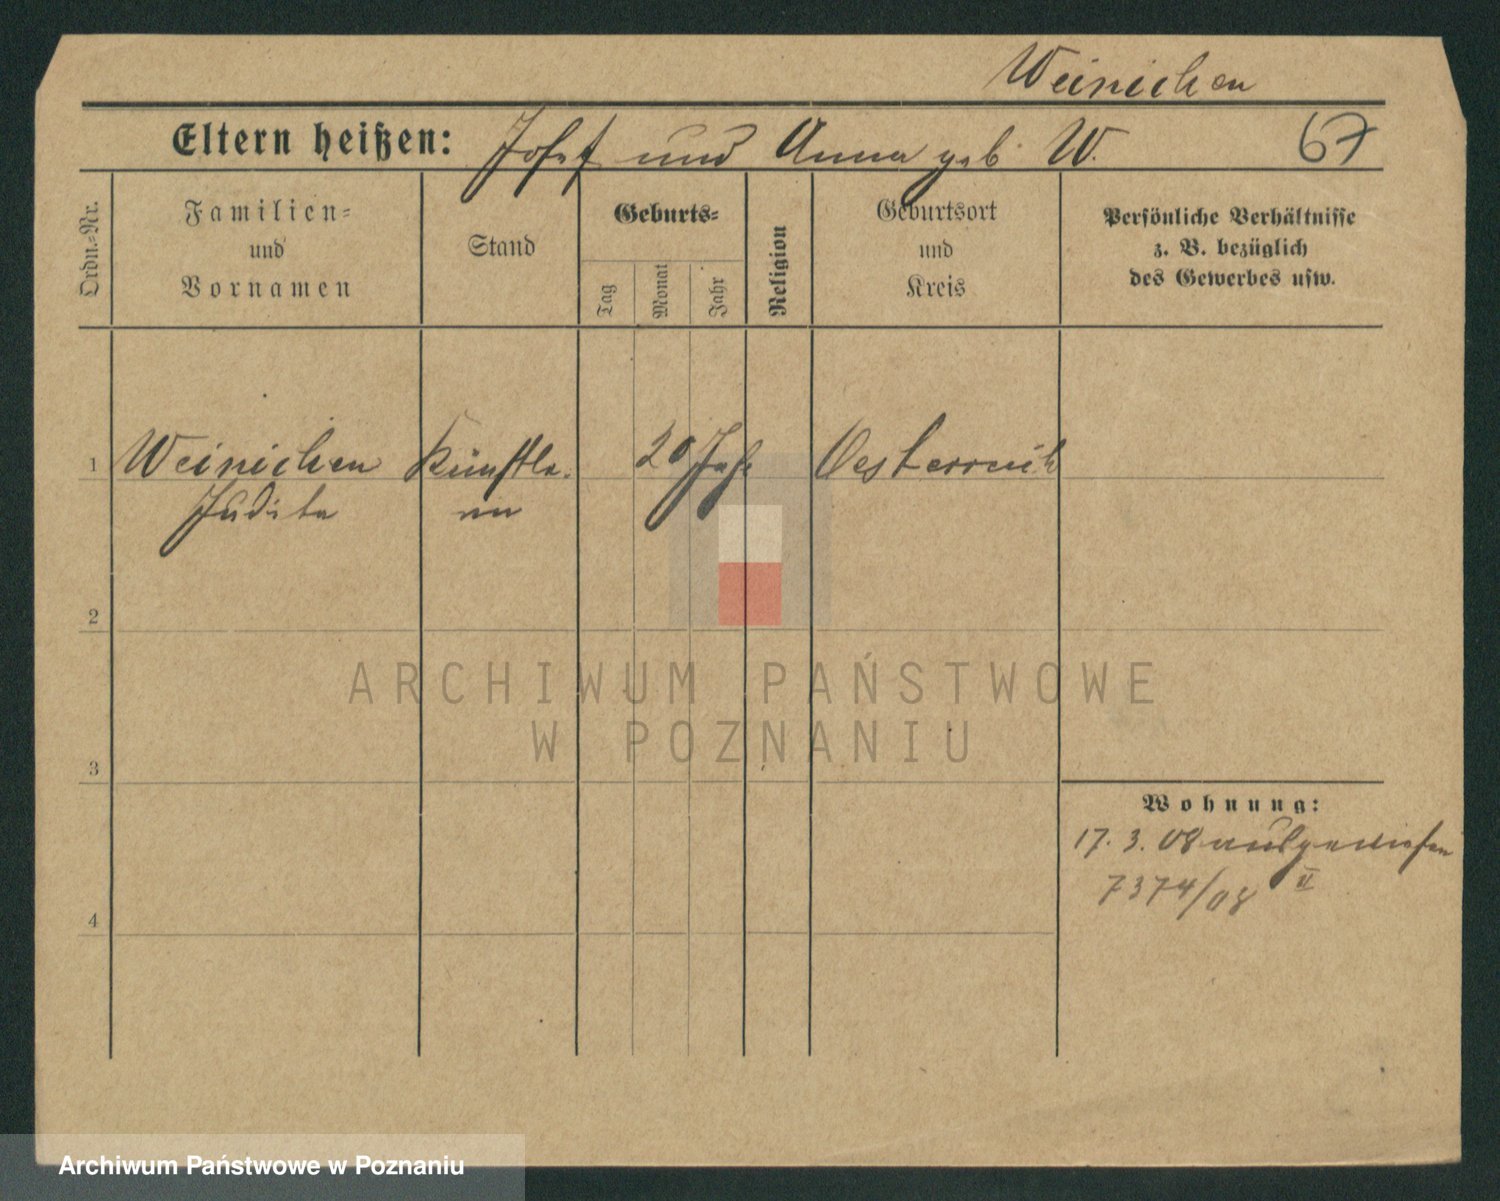 Weinichen
Eltern heißen: Josef und Anna geb. W. 67
Ordn.-Nr.
Familien-
und
Vornamen
Stand
Geburts-
Tag
Monat
Jahr
Religion
Geburtsort
und
Kreis
Persönliche Verhältnisse
z. B. bezüglich
des Gewerbes usw.
1 Weinichen Künstle- 20 Jahr Oesterreich
Judita rin
2
ARCHIWUM PAŃSTWOWE
W POZNANIU
3
Wohnung:
17. 3. 08 ausgewiesen
7374/08 II
4
Archiwum Państwowe w Poznaniu